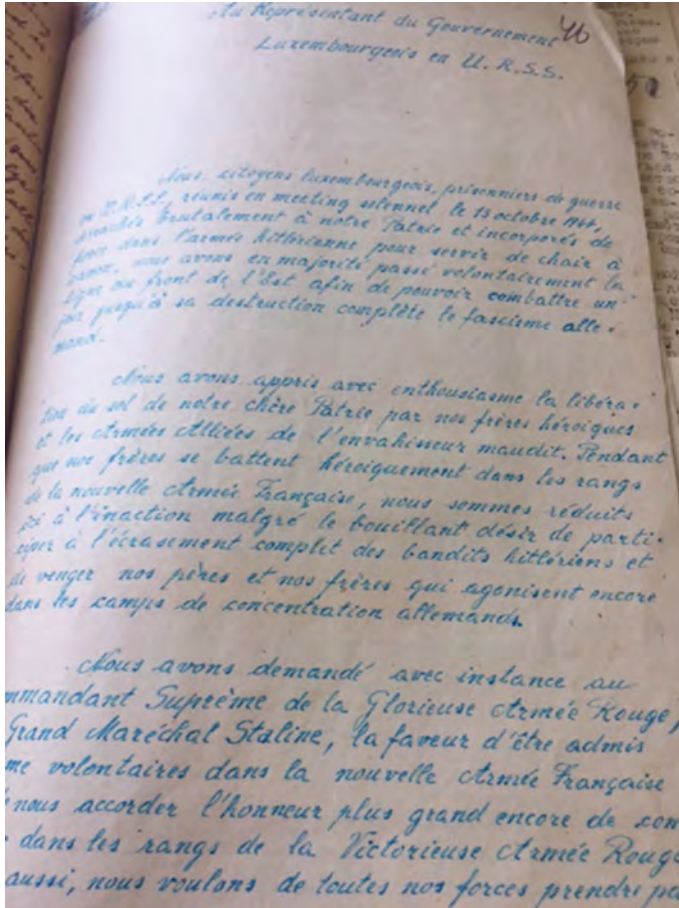 Au Représentant du Gouvernement
46
Luxembourgeois en U.R.S.S.
Nous, citoyens luxembourgeois, prisonniers de guerre
en U.R.S.S., réunis en meeting solennel le 15 octobre 1944,
arrachés brutalement à notre Patrie et incorporés de
force dans l'armée hitlérienne pour servir de chair à
canon, nous avons en majorité passé volontairement la
ligne du front de l'Est afin de pouvoir combattre un
jour jusqu'à sa destruction complète le fascisme alle-
mand.
Nous avons appris avec enthousiasme la libéra-
tion du sol de notre chère Patrie par nos frères héroïques
et les Armées Alliées de l'envahisseur maudit. Pendant
que nos frères se battent héroïquement dans les rangs
de la nouvelle Armée Française, nous sommes réduits
ici à l'inaction malgré le bouillant désir de parti-
ciper à l'écrasement complet des bandits hitlériens et
de venger nos pères et nos frères qui agonisent encore
dans les camps de concentration allemands.
Nous avons demandé avec instance au
mmandant Suprème de la Glorieuse Armée Rouge,
Grand Maréchal Staline, la faveur d'être admis
me volontaires dans la nouvelle Armée Française
nous accorder l'honneur plus grand encore de com
dans les rangs de la Victorieuse Armée Rouge
aussi, nous voulons de toutes nos forces prendre pa